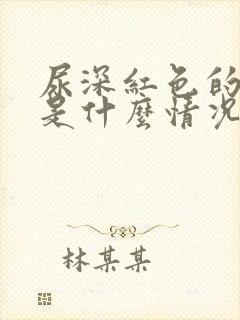 尿深紅色的
是什麼情況
林某某